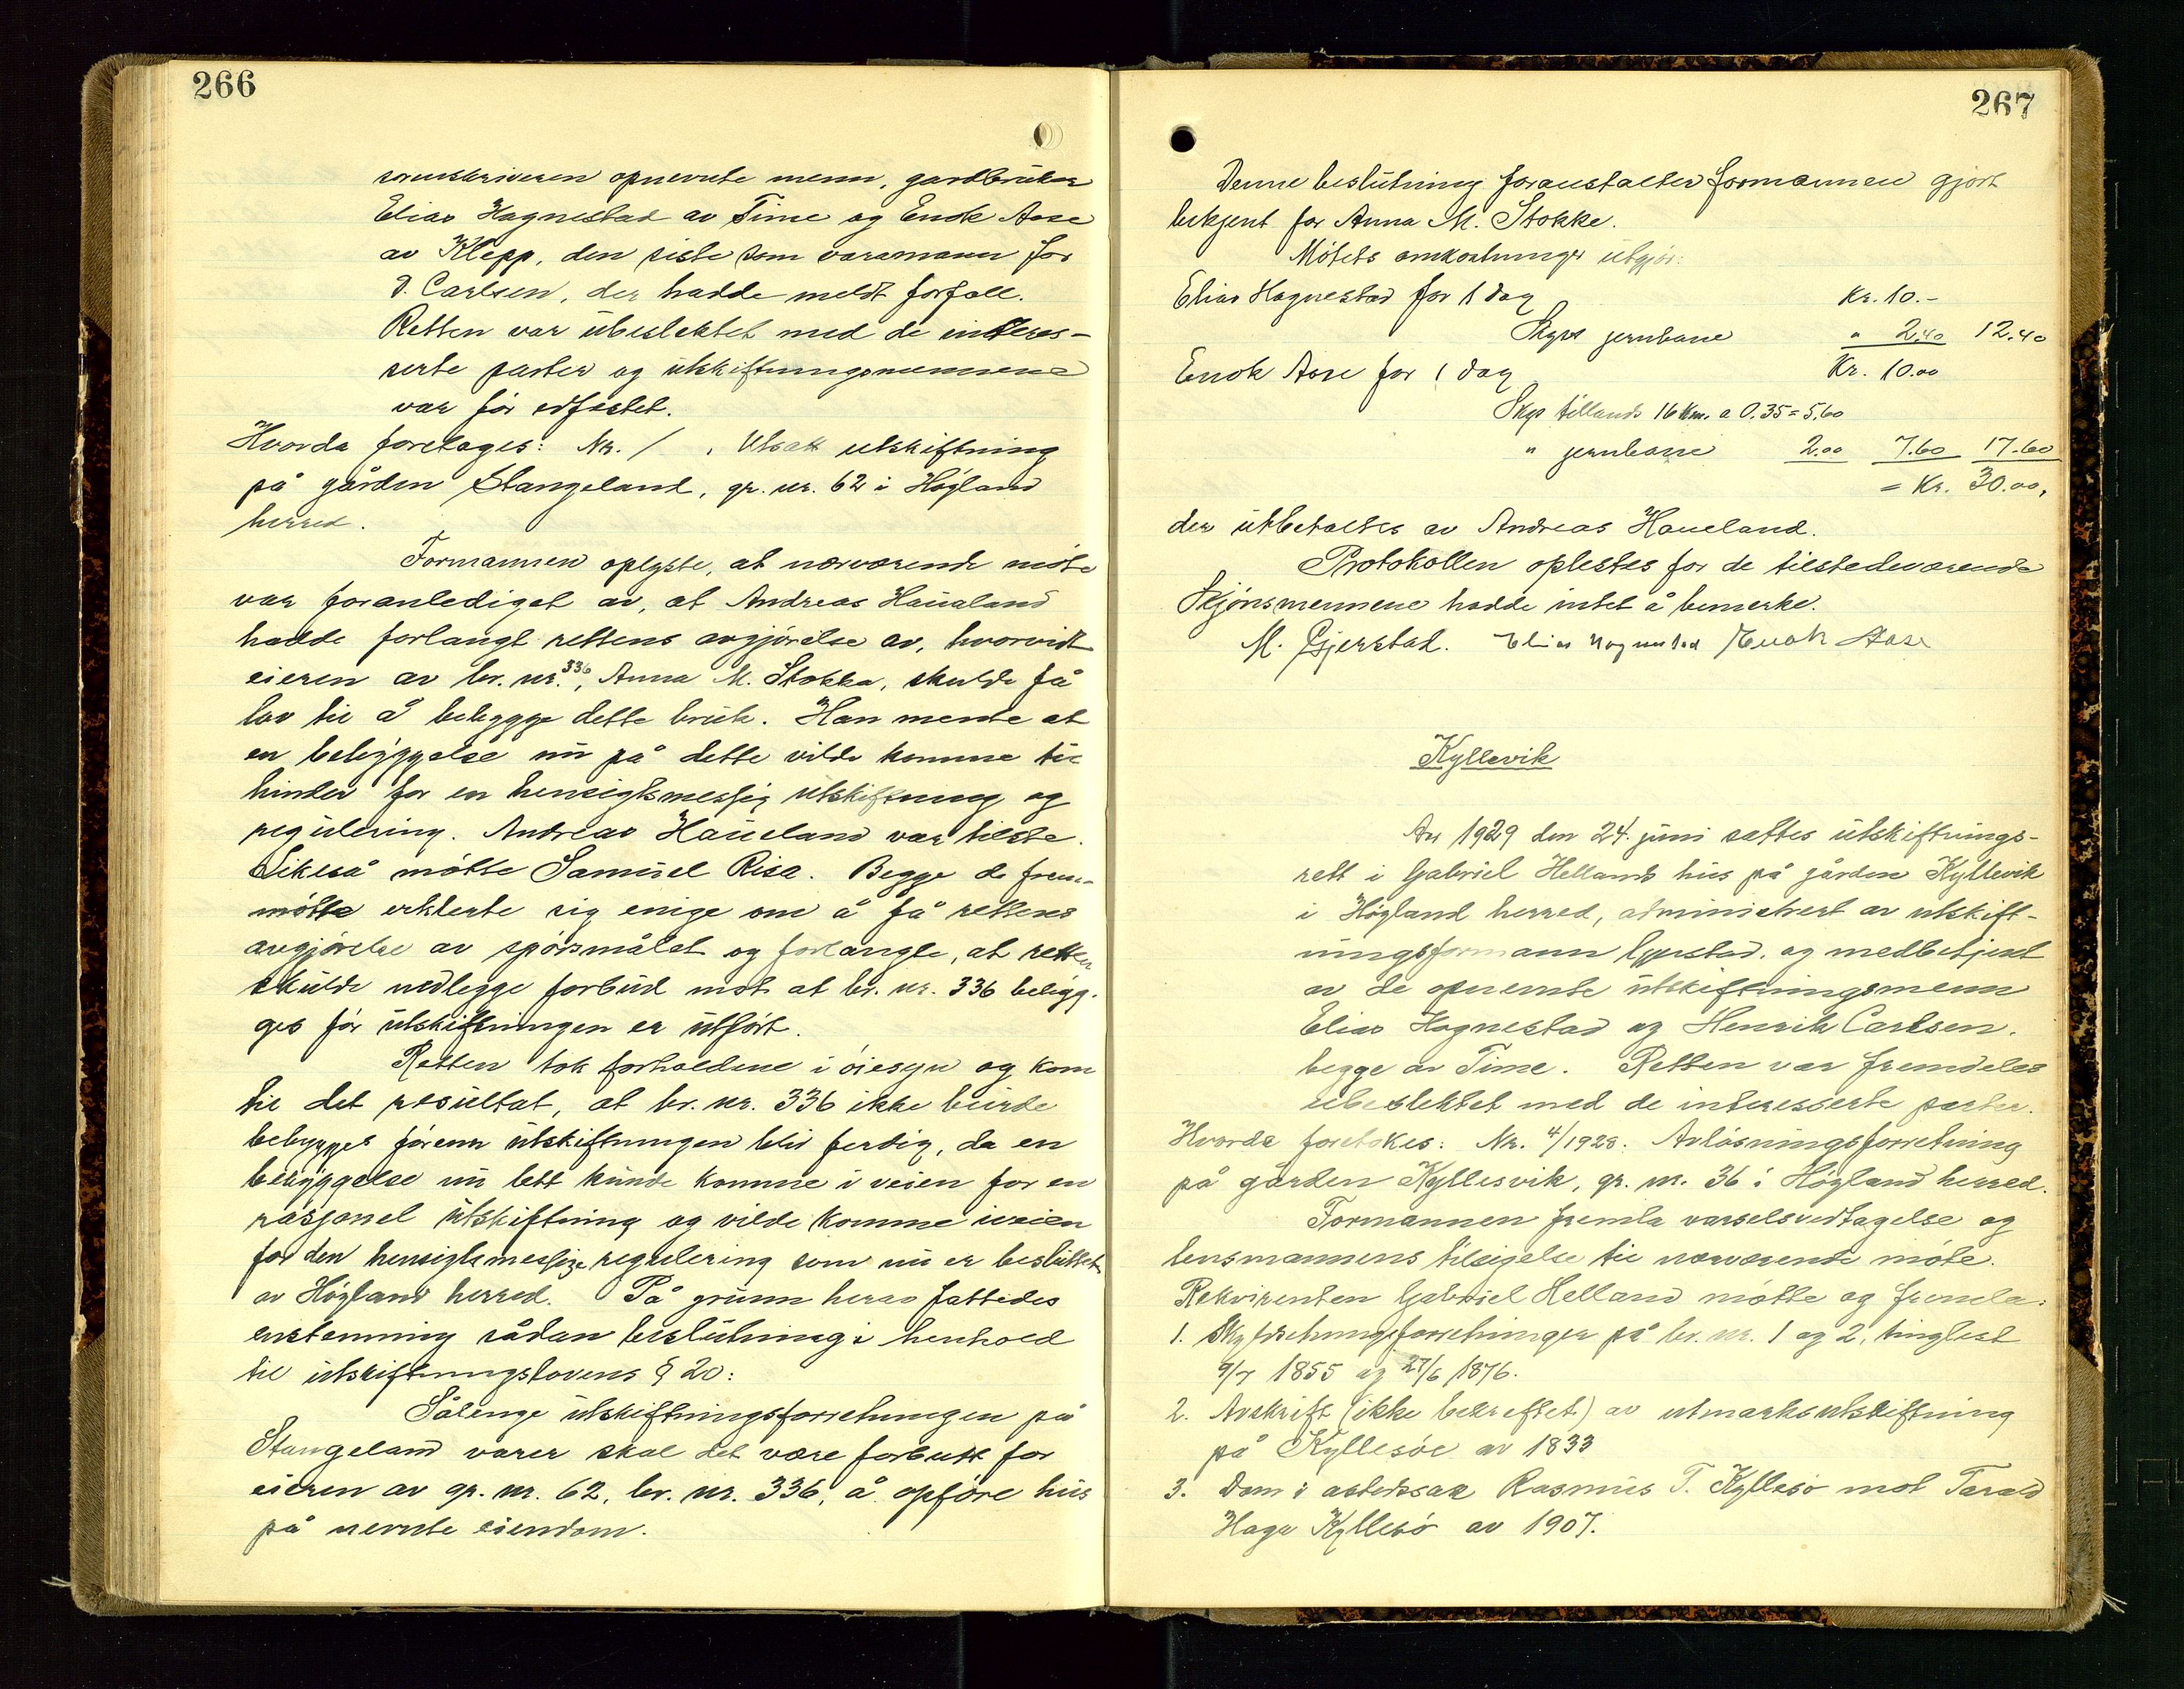 266
sorenskriveren opnevnte menn, gardbruker
Elias Hagnestad av Time og Enok Aase
av Klepp, den siste som varamann for
O. Carlsen, der hadde meldt forfall.
Retten var ubeslektet med de interes-
serte parter og utskiftningsmennene
var før edfestet.
Hvorda foretages: Nr. / . Utsatt utskiftning
på gården Stangeland, gr. nr. 62 i Høgland
herred.
Formannen oplyste, at nærværende møte
var foranlediget av, at Andreas Haualand
hadde forlangt rettens avgjørelse av, hvorvidt
eieren av br. nr. 336, Anna M. Stokka, skulde få
lov til å bebygge dette bruk. Han mente at
en bebyggelse nu på dette vilde komme til
hinder for en hensigtsmessig utskiftning og
regulering. Andreas Haueland var tilstede.
Likeså møtte Samuel Risa. Begge de frem-
møtte erklerte sig enige om å få rettens
avgjørelse av spørsmålet og forlangte, at retten
skulde nedlegge forbud mot at br. nr. 336 bebyg-
ges før utskiftningen er utført.
Retten tok forholdene i øiesyn og kom
til det resultat, at br. nr. 336 ikke burde
bebygges førenn utskiftningen blir ferdig, da en
bebyggelse nu lett kunde komme i veien for en
rasjonel utskiftning og vilde komme iveien
for den hensigtsmessige regulering som nu er besluttet
av Høgland herred. På grunn herav fattedes
enstemmig sådan beslutning i henhold
til utskiftningslovens § 20:
Sålenge utskiftningsforretningen på
Stangeland varer skal det være forbutt for
eieren av gr. nr. 62, br. nr. 336, å opføre hus
på nevnte eiendom.
267
Denne beslutning foranstalter formannen gjort
bekjent for Anna M. Stokke.
Møtets omkostninger utgjør:
Elias Hagnestad for 1 dag Kr. 10.-
Skyss jernbane " 2,40 12.40
Enok Aase for 1 dag Kr. 10.00
Skys tillands 16 Km. a 0.35 = 5,60
" jernbane 2.00 7.60 17.60
= Kr. 30.00,
der utbetaltes av Andreas Haueland.
Protokollen oplestes for de tilstedeværende
Skjønsmennene hadde intet å bemerke.
M. Gjerstad. Elias Hognestad Enok Aase
Kyllevik
Aar 1929 den 24. juni sattes utskiftnings-
rett i Gabriel Hellands hus på gården Kyllevik
i Høgland herred, administrert av utskift-
ningsformann Gjerstad. og medbetjent
av de opnevnte utskiftningsmenn
Elias Hagnestad og Henrik Carlsen.
begge av Time. Retten var fremdeles
ubeslektet med de interesserte parter.
Hvorda foretokes: Nr. 4/1928: Avløsningsforretning
på gården Kyllesvik, gr. nr. 36 i Høgland herred.
Formannen fremla varselsvedtagelse og
lensmannens tilsigelse til nærværende møte.
Rekvirenten Gabriel Helland møtte og fremla:
1. Skyldsetningsforretninger på br. nr. 1 og 2, tinglest
9/7 1855 og 27/6 1876.
2. Avskrift (ikke bekreftet) av utmarksutskiftning
på Kyllesøe av 1833
3. Dom i astedssak Rasmus T. Kyllesø mot Tarald
Haga Kyllesø av 1907.